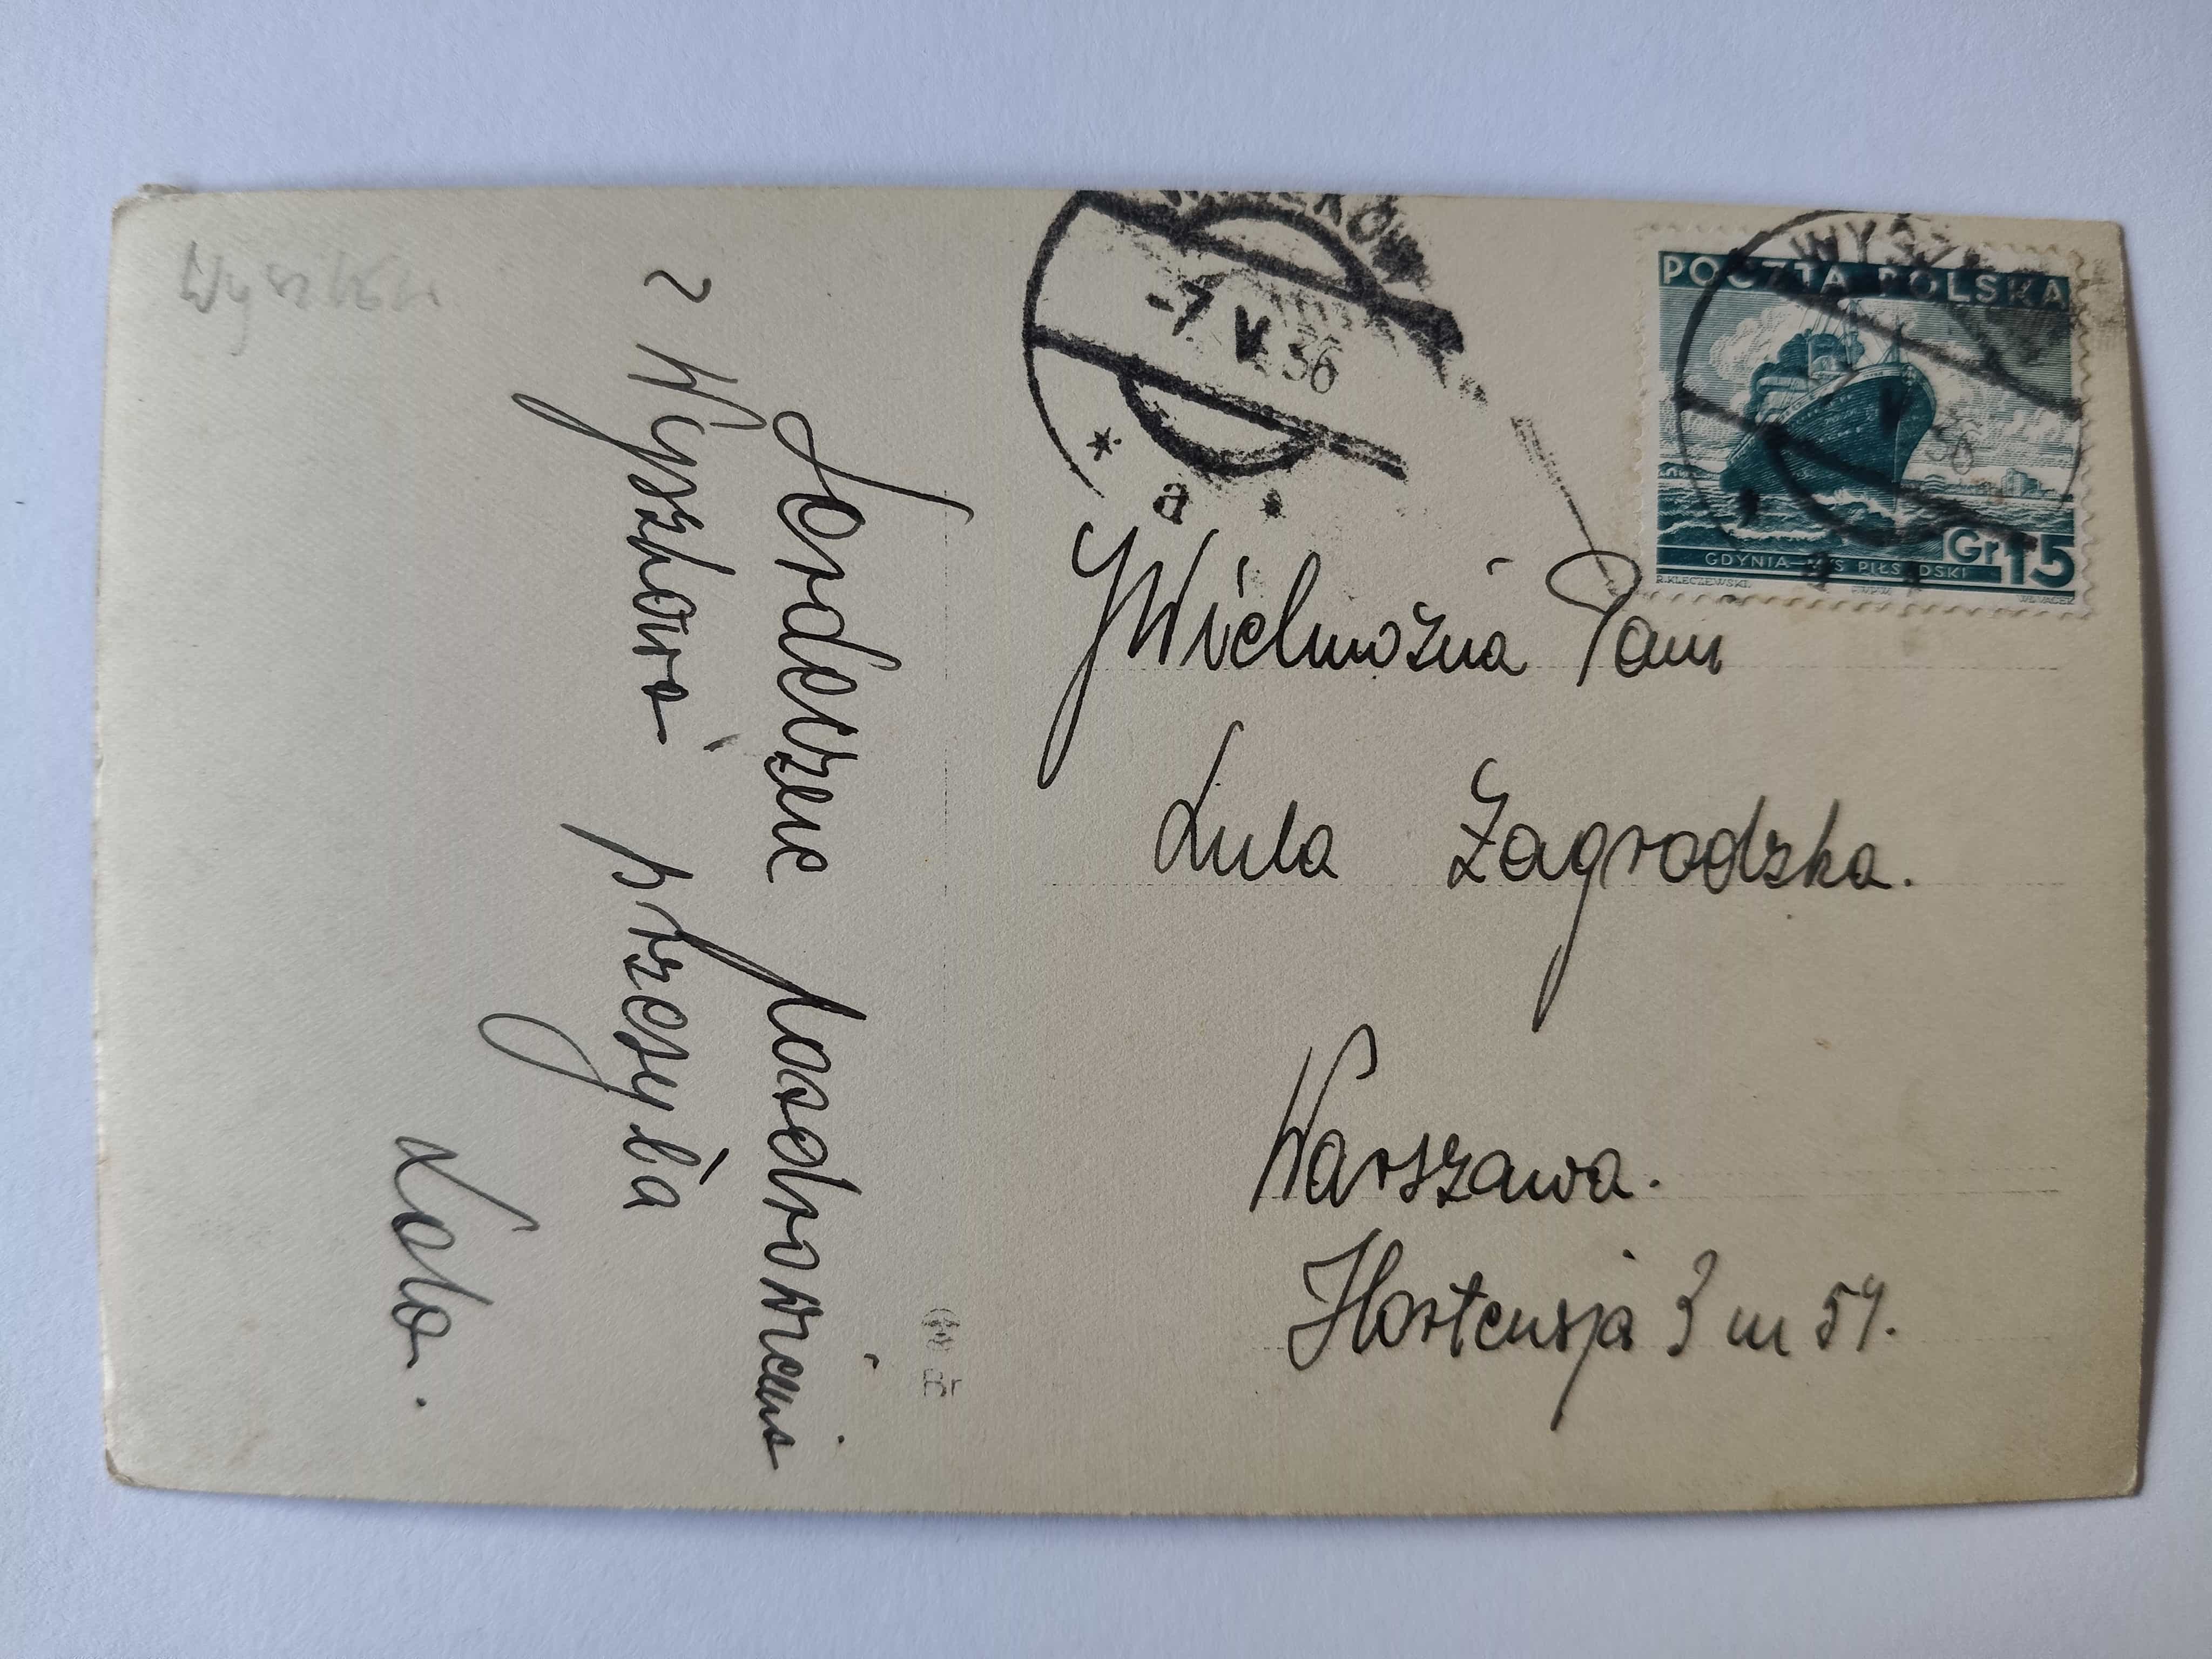 Wyszków
Serdeczne pozdrowienia
z Wyszkowa przesyła
Lolo.
WYSZKÓW
-7.V.36
* a *
WYSZ
V 36
POCZTA POLSKA
Gr 15
GDYNIA—M/S PIŁSUDSKI
R.KLECZEWSKI.
JWielmożna Pani
Lula Zagrodzka.
Warszawa.
Hortensja 3 m 51.